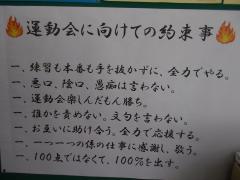 運動会に向けての約束事
一、練習も本番も手を抜かずに、全力でやる。
一、悪口、陰口、愚痴は言わない。
一、運動会楽しんだもん勝ち。
一、誰かを責めない。文句を言わない。
一、お互いに助け合う。全力で応援する。
一、一つ一つの係の仕事に感謝し、敬う。
一、100点ではなくて、100%を出す。